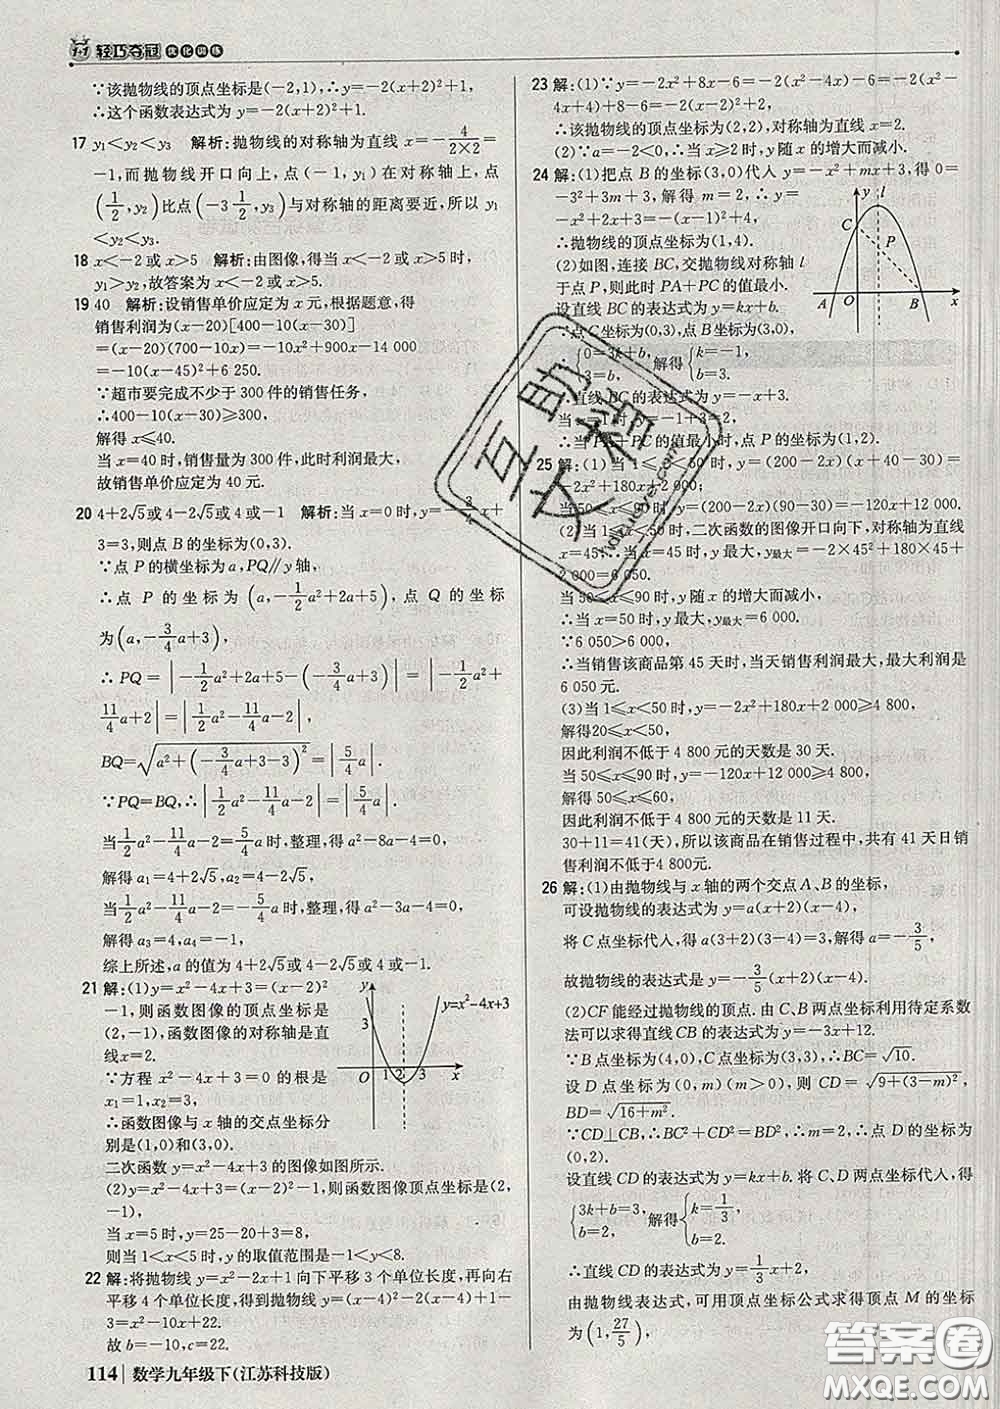 1+1 轻巧夺冠 优化训练
∵该抛物线的顶点坐标是(-2,1),∴y=-2(x+2)²+1.
∴这个函数表达式为 y=-2(x+2)²+1.
17 y₁<y₂<y₃ 解析:抛物线的对称轴为直线 x=-4/(2×2)=
-1,而抛物线开口向上,点(-1,y₁)在对称轴上,点
(1/2,y₂)比点(-3 1/2,y₃)与对称轴的距离要近,所以 y₁
<y₂<y₃.
18 x<-2或x>5 解析:由图像,得当x<-2或x>5时,
y₁>y₂,故答案为x<-2或x>5.
19 40 解析:设销售单价应定为 x 元,根据题意,得
销售利润为(x-20)[400-10(x-30)]
=(x-20)(700-10x)=-10x²+900x-14 000
=-10(x-45)²+6 250.
∵超市要完成不少于 300 件的销售任务,
∴400-10(x-30)≥300,
解得 x≤40.
当 x=40 时,销售量为 300 件,此时利润最大,
故销售单价应定为 40 元.
20 4+2√5或4-2√5或4或-1 解析:当x=0时,y=-3/4x+
3=3,则点 B 的坐标为(0,3).
∵点 P 的横坐标为a,PQ∥y轴,
∴点 P 的坐标为(a,-1/2a²+2a+5),点 Q 的坐标
为(a,-3/4a+3),
∴PQ=|-1/2a²+2a+5-(-3/4a+3)|=|-1/2a²+
11/4a+2|=|1/2a²-11/4a-2|,
BQ=√(a²+(-3/4a+3-3)²)=|5/4a|.
∵PQ=BQ,∴|1/2a²-11/4a-2|=|5/4a|.
当1/2a²-11/4a-2=5/4a时,整理,得a²-8a-4=0,
解得 a₁=4+2√5,a₂=4-2√5.
当1/2a²-11/4a-2=-5/4a时,整理,得a²-3a-4=0,
解得 a₃=4,a₄=-1,
综上所述,a的值为4+2√5或4-2√5或4或-1.
21 解:(1)y=x²-4x+3=(x-2)²
-1,则函数图像的顶点坐标是
(2,-1),函数图像的对称轴是直
线x=2.
∵方程 x²-4x+3=0的根是
x₁=1,x₂=3,
∴函数图像与 x 轴的交点坐标分
别是(1,0)和(3,0).
二次函数 y=x²-4x+3 的图像如图所示.
(2)y=x²-4x+3=(x-2)²-1,则函数图像顶点坐标是(2,
-1),
当 x=5 时,y=25-20+3=8,
则当 1<x<5 时,y 的取值范围是-1<y<8.
y
y=x²-4x+3
O 1 2 3 x
22 解:将抛物线 y=x²-2x+1 向下平移 3 个单位长度,再向右
平移 4 个单位长度,得到抛物线 y=(x-4)²-2(x-4)+1-
3=x²-10x+22.
故 b=-10,c=22.
114 数学九年级下(江苏科技版)
23 解:(1)∵y=-2x²+8x-6=-2(x²-4x)-6=-2(x²-
4x+4)+8-6=-2(x-2)²+2,
∴该抛物线的顶点坐标为(2,2),对称轴为直线 x=2.
(2)∵a=-2<0,∴当x≥2时,y随x的增大而减小.
24 解:(1)把点 B 的坐标(3,0)代入 y=-x²+mx+3,得0=
-3²+3m+3,解得 m=2,∴y=
-x²+2x+3=-(x-1)²+4,
∴抛物线的顶点坐标为(1,4).
(2)如图,连接 BC,交抛物线对称轴 l
于点 P,则此时 PA+PC 的值最小.
设直线 BC 的表达式为 y=kx+b.
∵点 C 坐标为(0,3),点 B 坐标为(3,0),
∴{0=3k+b, 3=b. 解得{k=-1, b=3.
∴直线 BC 的表达式为 y=-x+3.
当 x=1 时,y=-1+3=2,
∴当 PA+PC 的值最小时,点 P 的坐标为(1,2).
y l
C P
A O B x
25 解:(1)当 1≤x<50 时,y=(200-2x)(x+40-30)=
-2x²+180x+2 000;
当50≤x≤90时,y=(200-2x)(90-30)=-120x+12 000.
(2)当 1≤x<50 时,二次函数的图像开口向下,对称轴为直线
x=45,∴当 x=45 时,y 最大,y最大=-2×45²+180×45+
2 000=6 050.
当 50≤x≤90 时,y 随 x 的增大而减小,
∴当 x=50 时,y最大,y最大=6 000.
∵6 050>6 000,
∴当销售该商品第 45 天时,当天销售利润最大,最大利润是
6 050元.
(3)当 1≤x<50 时,y=-2x²+180x+2 000≥4 800,
解得20≤x<50,
因此利润不低于 4 800 元的天数是 30 天.
当 50≤x≤90 时,y=-120x+12 000≥4 800,
解得 50≤x≤60,
因此利润不低于 4 800 元的天数是 11 天.
30+11=41(天),所以该商品在销售过程中,共有 41 天日销
售利润不低于4 800元.
26 解:(1)由抛物线与 x 轴的两个交点 A、B 的坐标,
可设抛物线的表达式为 y=a(x+2)(x-4),
将 C 点坐标代入,得 a(3+2)(3-4)=3,解得 a=-3/5,
故抛物线的表达式是 y=-3/5(x+2)(x-4).
(2)CF 能经过抛物线的顶点.由 C、B 两点坐标利用待定系数
法可以求得直线 CB 的表达式为 y=-3x+12.
∵B 点坐标为(4,0),C点坐标为(3,3),∴BC=√10.
设 D 点坐标为(0,m)(m>0),则 CD=√(9+(3-m)²),
BD=√(16+m²).
∵CD⊥CB,∴BC²+CD²=BD²,∴点 D 的坐标为
(0,2).
设直线 CD 的表达式为 y=kx+b.将 C、D 两点坐标代入,得
{3k+b=3, b=2. 解得{k=1/3, b=2.
∴直线 CD 的表达式为 y=1/3x+2,
由抛物线表达式,可用顶点坐标公式求得顶点 M 的坐标为
(1,27/5),
互助文程
答案圈
MXQE.COM